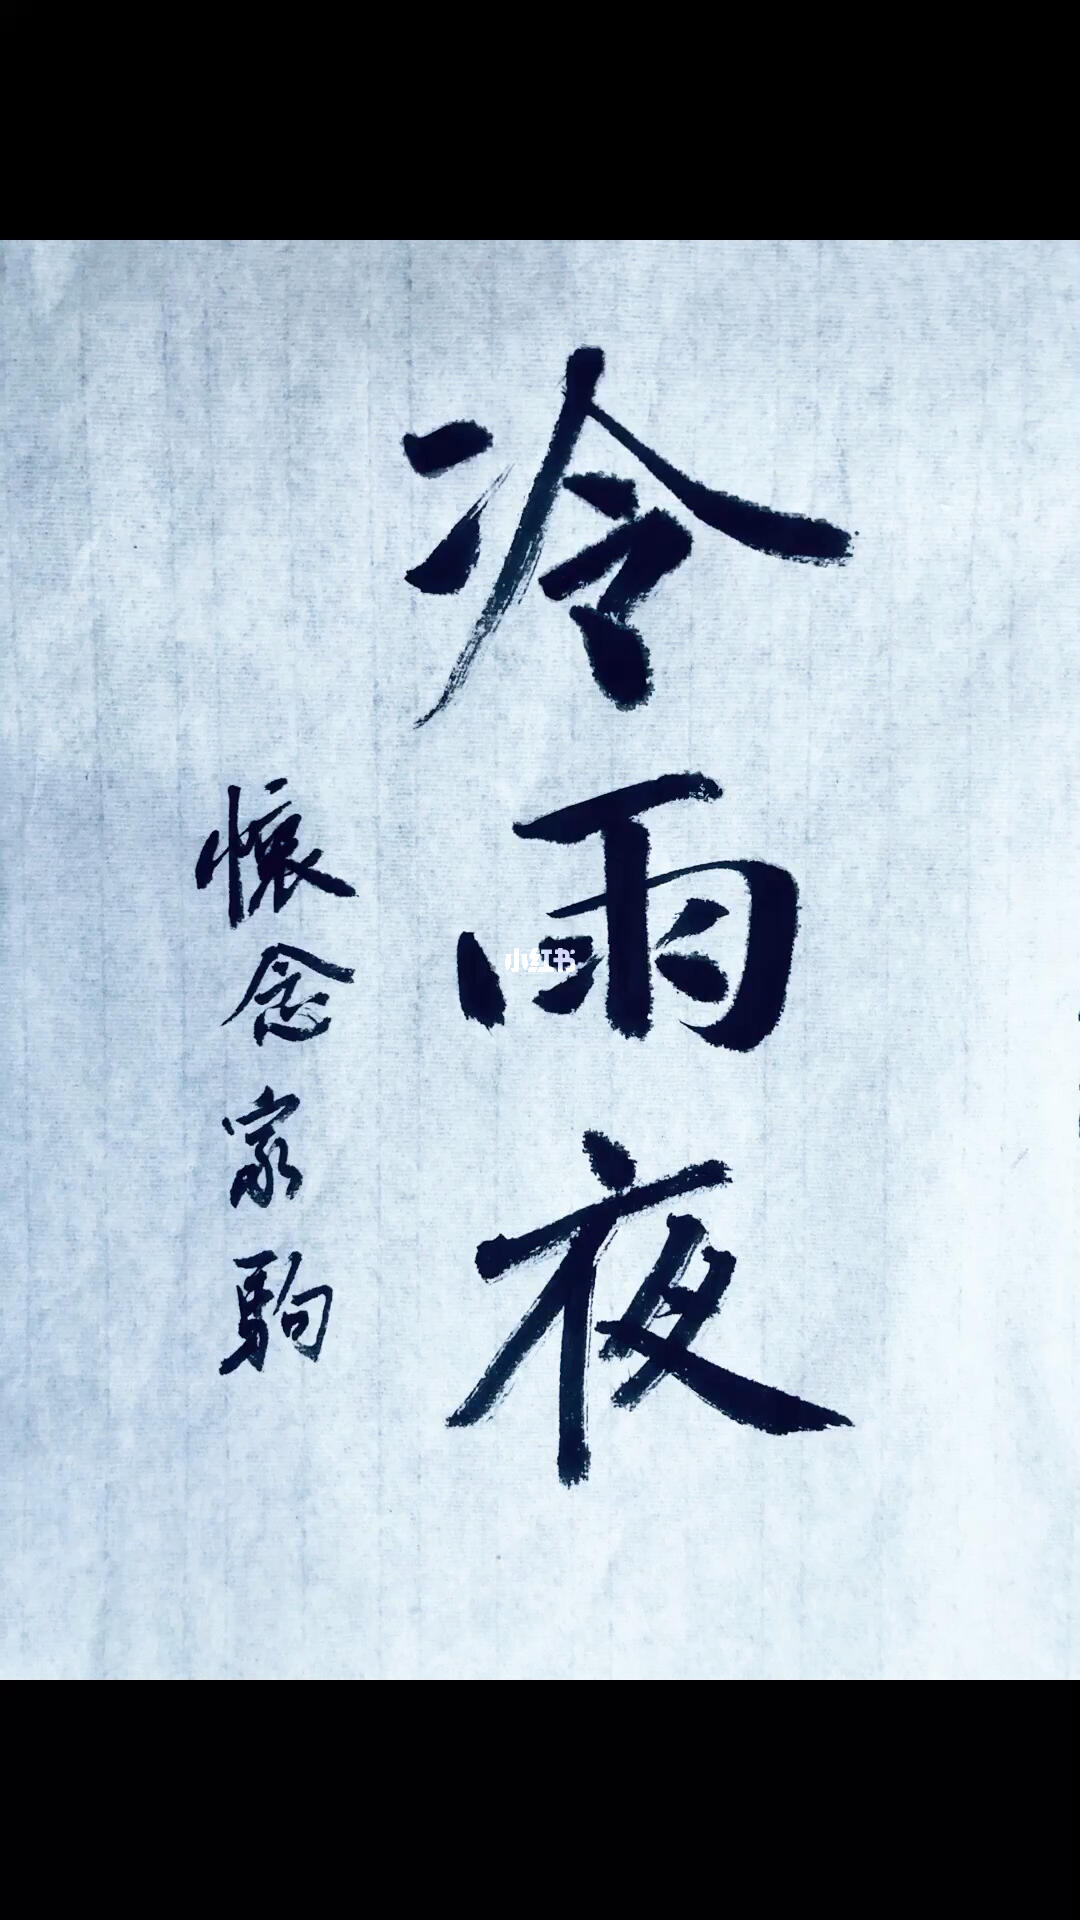 冷雨夜
懷念家駒
小红书